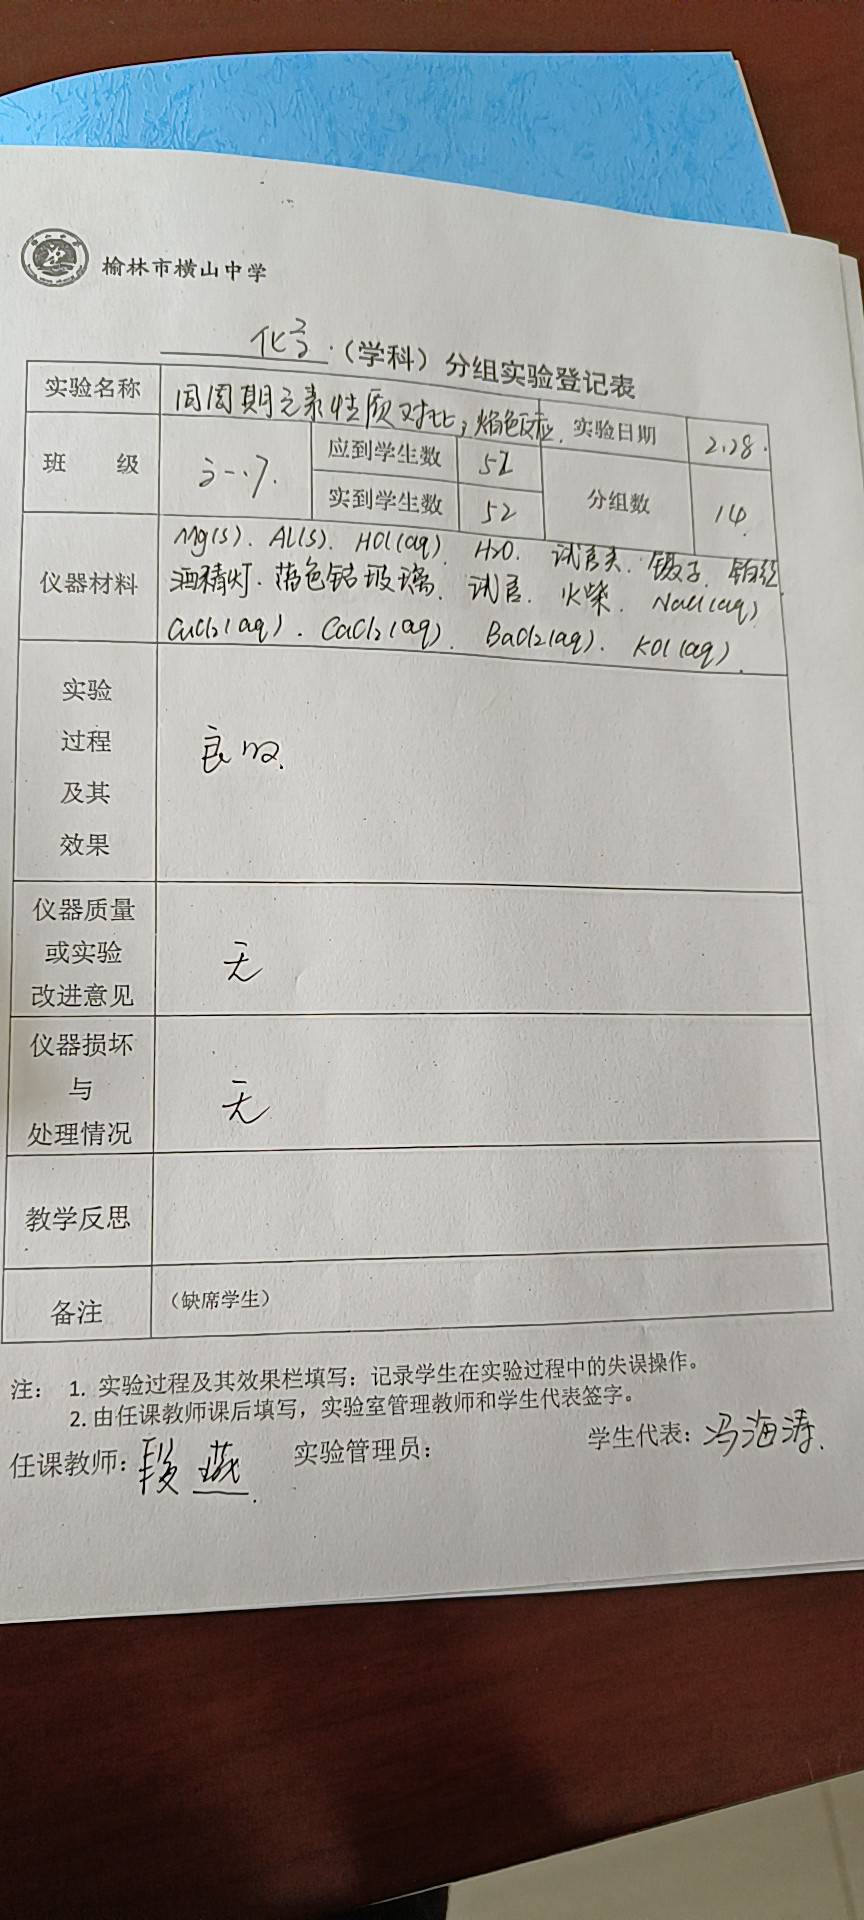 榆林市横山中学
化学（学科）分组实验登记表
实验名称 同周期元素性质对比，焰色反应. 实验日期 2.28.
班 级 高一.7. 应到学生数 52 分组数 14.
实到学生数 52
仪器材料 Mg(s). Al(s). HCl(aq). H2O. 试管夹. 镊子. 铂丝.
酒精灯. 蓝色钴玻璃. 试管. 火柴. NaCl(aq)
CuCl2(aq). CaCl2(aq). BaCl2(aq). KCl(aq).
实验
过程
及其
效果
良好.
仪器质量
或实验
改进意见
无
仪器损坏
与
处理情况
无
教学反思
备注 （缺席学生）
注： 1. 实验过程及其效果栏填写：记录学生在实验过程中的失误操作。
2. 由任课教师课后填写，实验室管理教师和学生代表签字。
任课教师：段燕 实验管理员： 学生代表：冯海涛.